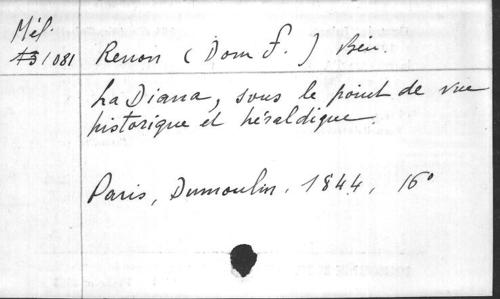 Mél.
A31081 Renon (Dom F.) Ben
La Diana, sous le point de vue
historique et héraldique.
Paris, Dumoulin. 1844, 16°